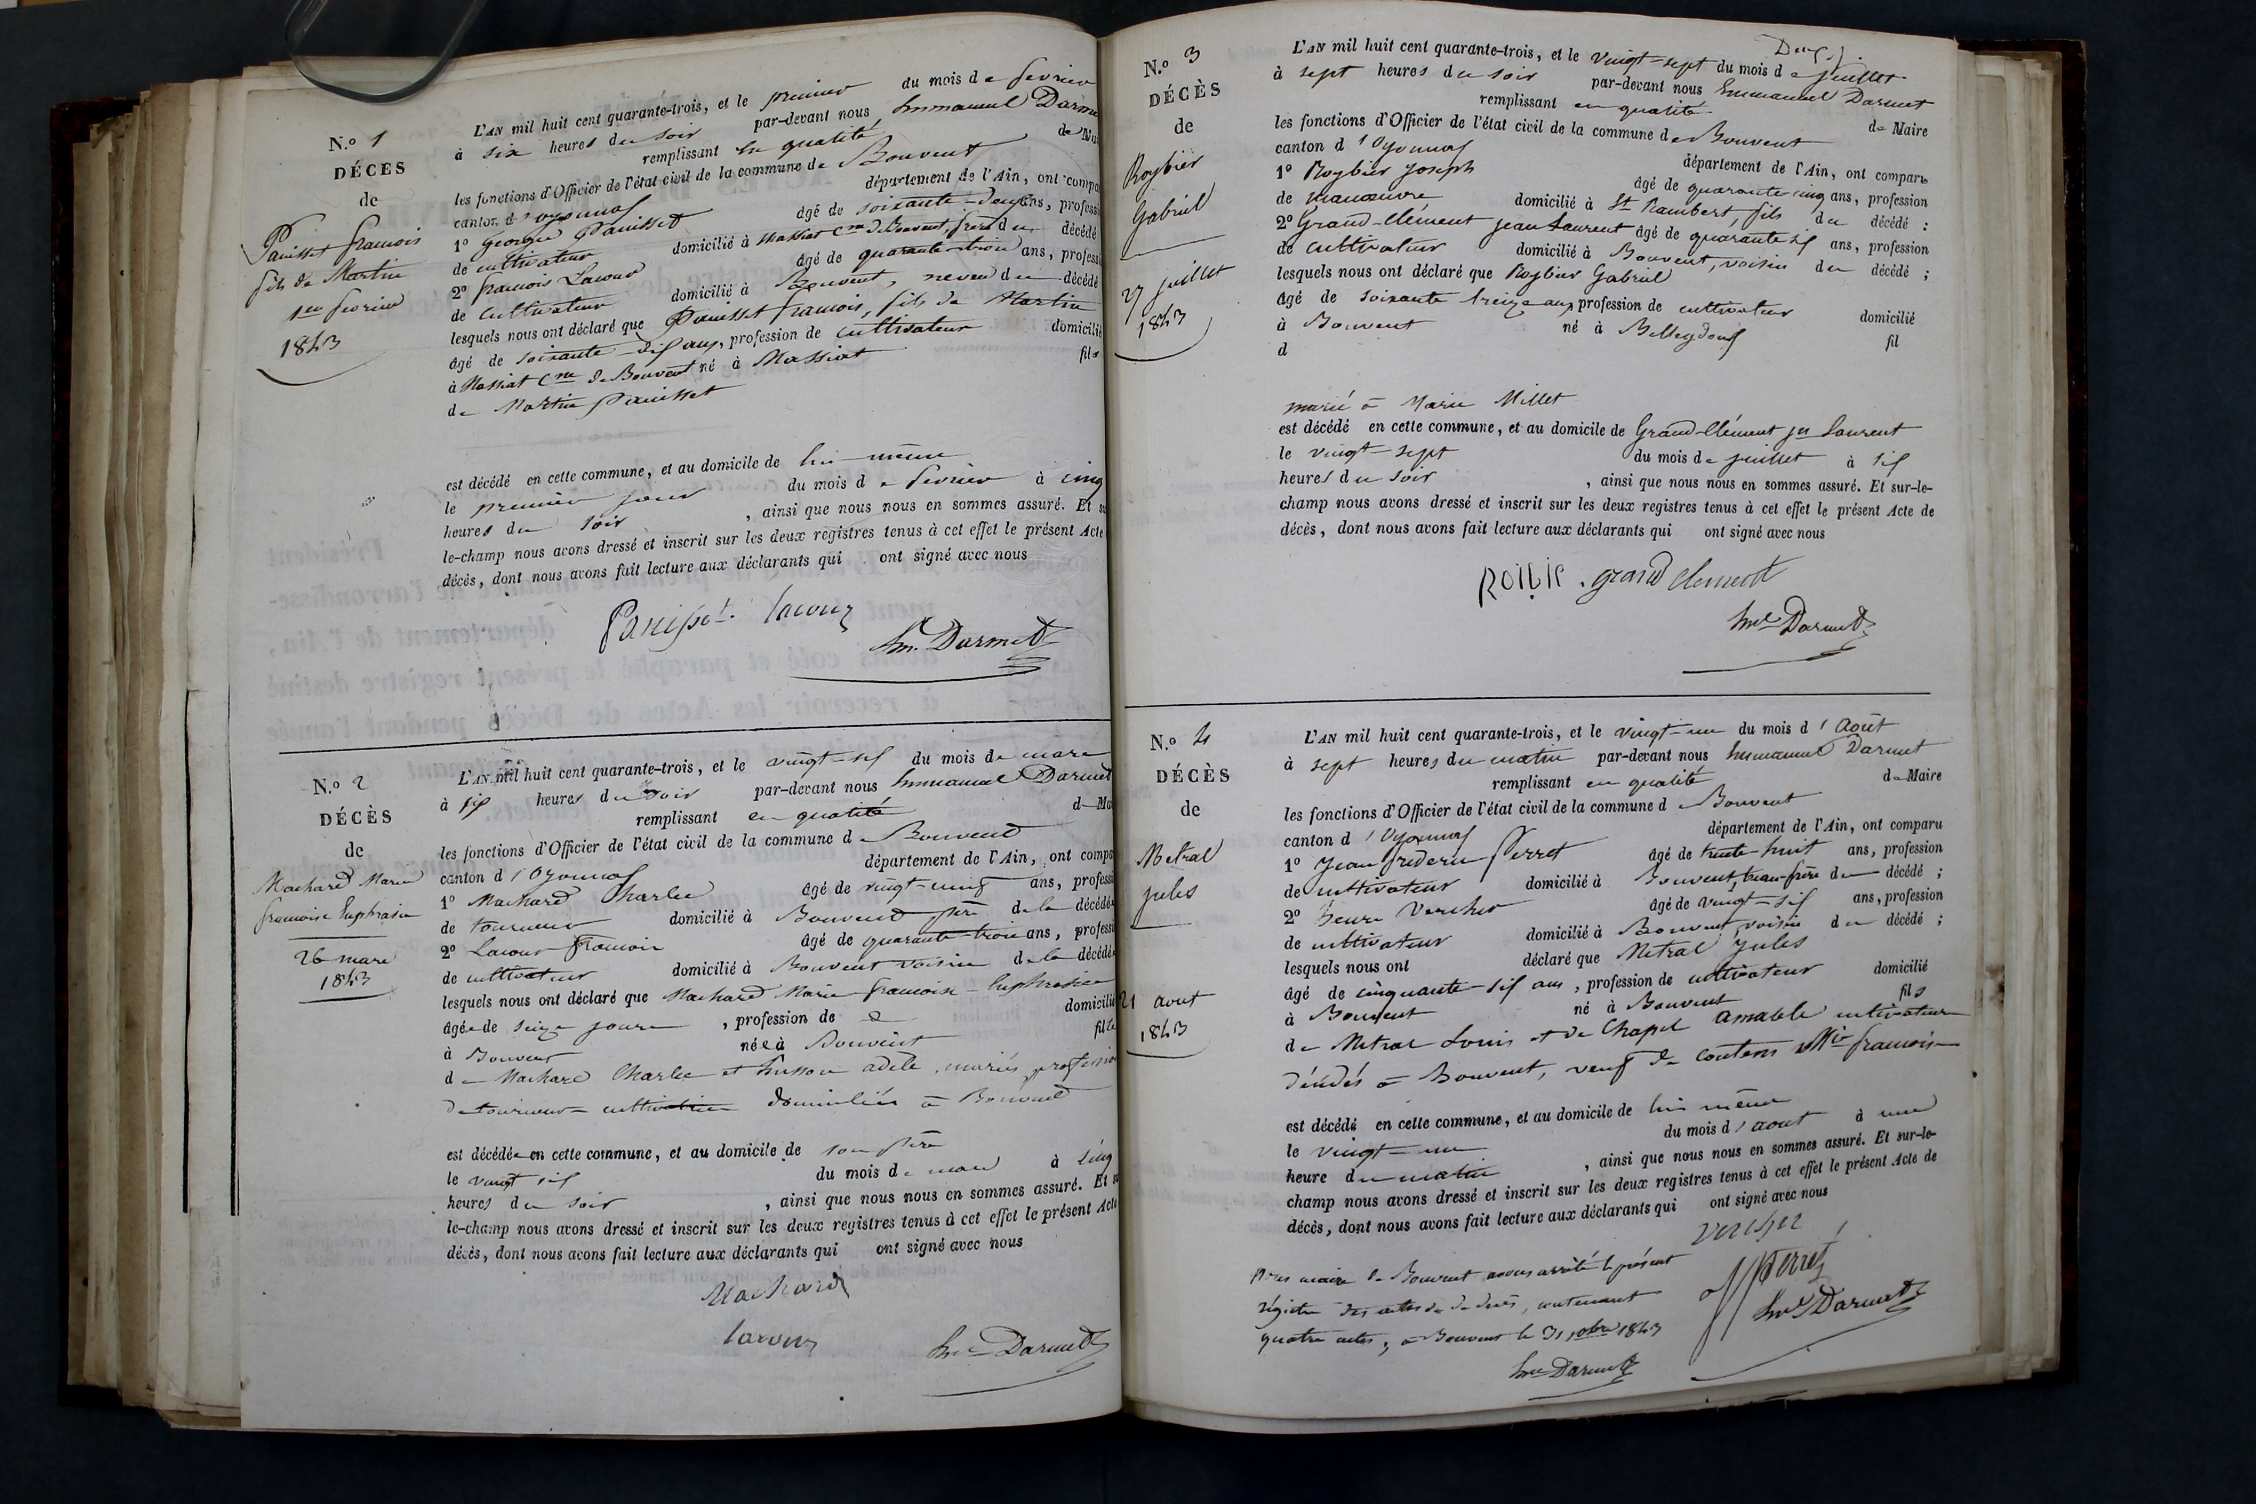 N.º 1
DÉCES
de
Panisset françois
fils de Martin
1er fevrier
1843
L'AN mil huit cent quarante-trois, et le premier du mois de fevrier
à six heures du soir par-devant nous Emmanuel Darmet
remplissant en qualité de Mai
les fonctions d'Officier de l'état civil de la commune de Bouvent
canton d'oyonnax département de l'Ain, ont compa
1º Georges Panisset âgé de soixante-deux ans, professi
de cultivateur domicilié à Massiat Cne de Bouvent, frère du décédé
2º françois Lacour âgé de quarante-trois ans, professi
de cultivateur domicilié à Bouvent, neveu du décédé
lesquels nous ont déclaré que Panisset françois, fils de Martin
âgé de soixante-dix ans, profession de cultivateur domicilié
à Massiat Cne de Bouvent né à Massiat fils
de Martin Panisset
est décédé en cette commune, et au domicile de lui-même
le premier jour du mois de fevrier à cinq
heures du soir, ainsi que nous nous en sommes assuré. Et su
le-champ nous avons dressé et inscrit sur les deux registres tenus à cet effet le présent Acte
décès, dont nous avons fait lecture aux déclarants qui ont signé avec nous
Panisset. lacour
Em. Darmet
N.º 2
DÉCÈS
de
Machard Marie
françoise Euphrasie
26 mars
1843
L'AN mil huit cent quarante-trois, et le vingt-six du mois de mars
à six heures du soir par-devant nous Emmanuel Darmet
remplissant en qualité de Ma
les fonctions d'Officier de l'état civil de la commune de Bouvent
canton d'Oyonnax département de l'Ain, ont compa
1º Machard Charles âgé de vingt-cinq ans, professi
de tourneur domicilié à Bouvent père de la décédée
2º Lacour françois âgé de quarante-trois ans, professi
de cultivateur domicilié à Bouvent voisin de la décédée
lesquels nous ont déclaré que Machard Marie françoise-Euphrasie
âgée de seize jours, profession de domicilié
à Bouvent née à Bouvent fille
de Machard Charles et husson adèle, mariés, profession
de tourneur cultivatrice domiciliés à Bouvent
est décédée en cette commune, et au domicile de son père
le vingt six du mois de mars à cinq
heures du soir, ainsi que nous nous en sommes assuré. Et su
le-champ nous avons dressé et inscrit sur les deux registres tenus à cet effet le présent Acte
décès, dont nous avons fait lecture aux déclarants qui ont signé avec nous
Machard
lacour
Emel Darmet
N.º 3
DÉCÈS
de
Roybier
Gabriel
27 juillet
1843
L'AN mil huit cent quarante-trois, et le vingt-sept du mois de juillet
à sept heures du soir par-devant nous Emmanuel Darmet
remplissant en qualité de Maire
les fonctions d'Officier de l'état civil de la commune de Bouvent
canton d'Oyonnax département de l'Ain, ont comparu
1º Roybier Joseph âgé de quarante-cinq ans, profession
de manœuvre domicilié à St Rambert, fils du décédé :
2º Grand-clément jean Laurent âgé de quarante six ans, profession
de cultivateur domicilié à Bouvent, voisin du décédé ;
lesquels nous ont déclaré que Roybier Gabriel
âgé de soixante treize ans, profession de cultivateur domicilié
à Bouvent né à Belleydoux fil
d
marié à Marie Millet
est décédé en cette commune, et au domicile de Grand-Clément jn Laurent
le vingt-sept du mois de juillet à six
heures du soir, ainsi que nous nous en sommes assuré. Et sur-le-
champ nous avons dressé et inscrit sur les deux registres tenus à cet effet le présent Acte de
décès, dont nous avons fait lecture aux déclarants qui ont signé avec nous
grand clement
Emel Darmet
N.º 4
DÉCÈS
de
Metral
jules
21 aout
1843
L'AN mil huit cent quarante-trois, et le vingt-un du mois d'Août
à sept heures du matin par-devant nous Emmanuel Darmet
remplissant en qualité de Maire
les fonctions d'Officier de l'état civil de la commune de Bouvent
canton d'Oyonnax département de l'Ain, ont comparu
1º Jean frederic Perret âgé de trente-huit ans, profession
de cultivateur domicilié à Bouvent, beau-frère du décédé ;
2º Vercher âgé de vingt-six ans, profession
de cultivateur domicilié à Bouvent, voisin du décédé ;
lesquels nous ont déclaré que Metral Jules
âgé de cinquante-six ans, profession de cultivateur domicilié
à Bouvent né à Bouvent fils
de Metral Louis et de Chapel amable cultivateurs
décédés à Bouvent, veuf de Mie françoise
est décédé en cette commune, et au domicile de lui même
le vingt-un du mois d'aout à une
heure du matin, ainsi que nous nous en sommes assuré. Et sur-le-
champ nous avons dressé et inscrit sur les deux registres tenus à cet effet le présent Acte de
décès, dont nous avons fait lecture aux déclarants qui ont signé avec nous
Vercher
Perret
Emel Darmet
Nous maire de Bouvent avons arrêté le présent
régistre des actes de décès, contenant
quatre actes, à Bouvent le 31 Xbre 1843
Emel Darmet